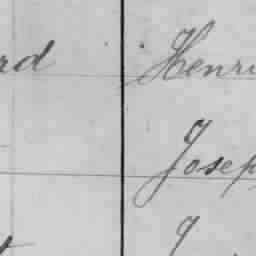 rd Henri
Josep